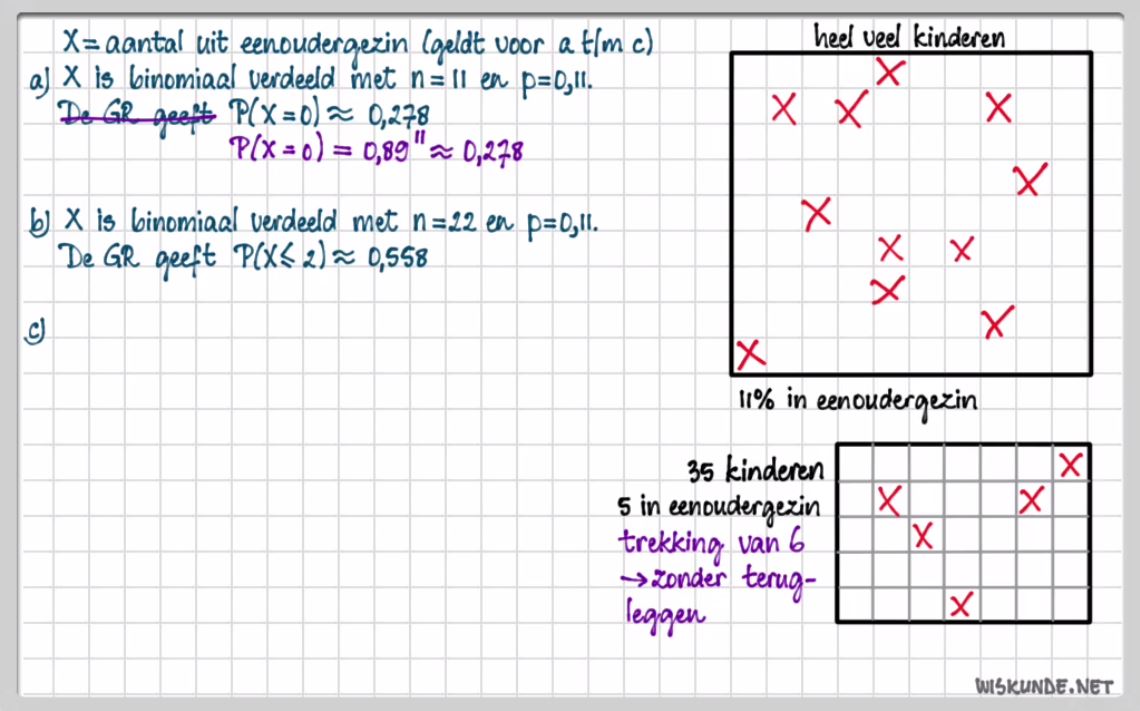 X = aantal uit eenoudergezin (geldt voor a t/m c)
a) X is binomiaal verdeeld met n=11 en p=0,11.
De GR geeft P(X=0) ≈ 0,278
P(X=0) = 0,89¹¹ ≈ 0,278
b) X is binomiaal verdeeld met n=22 en p=0,11.
De GR geeft P(X≤2) ≈ 0,558
c)
heel veel kinderen
11% in eenoudergezin
35 kinderen
5 in eenoudergezin
trekking van 6
→ zonder terug-
leggen
WISKUNDE.NET